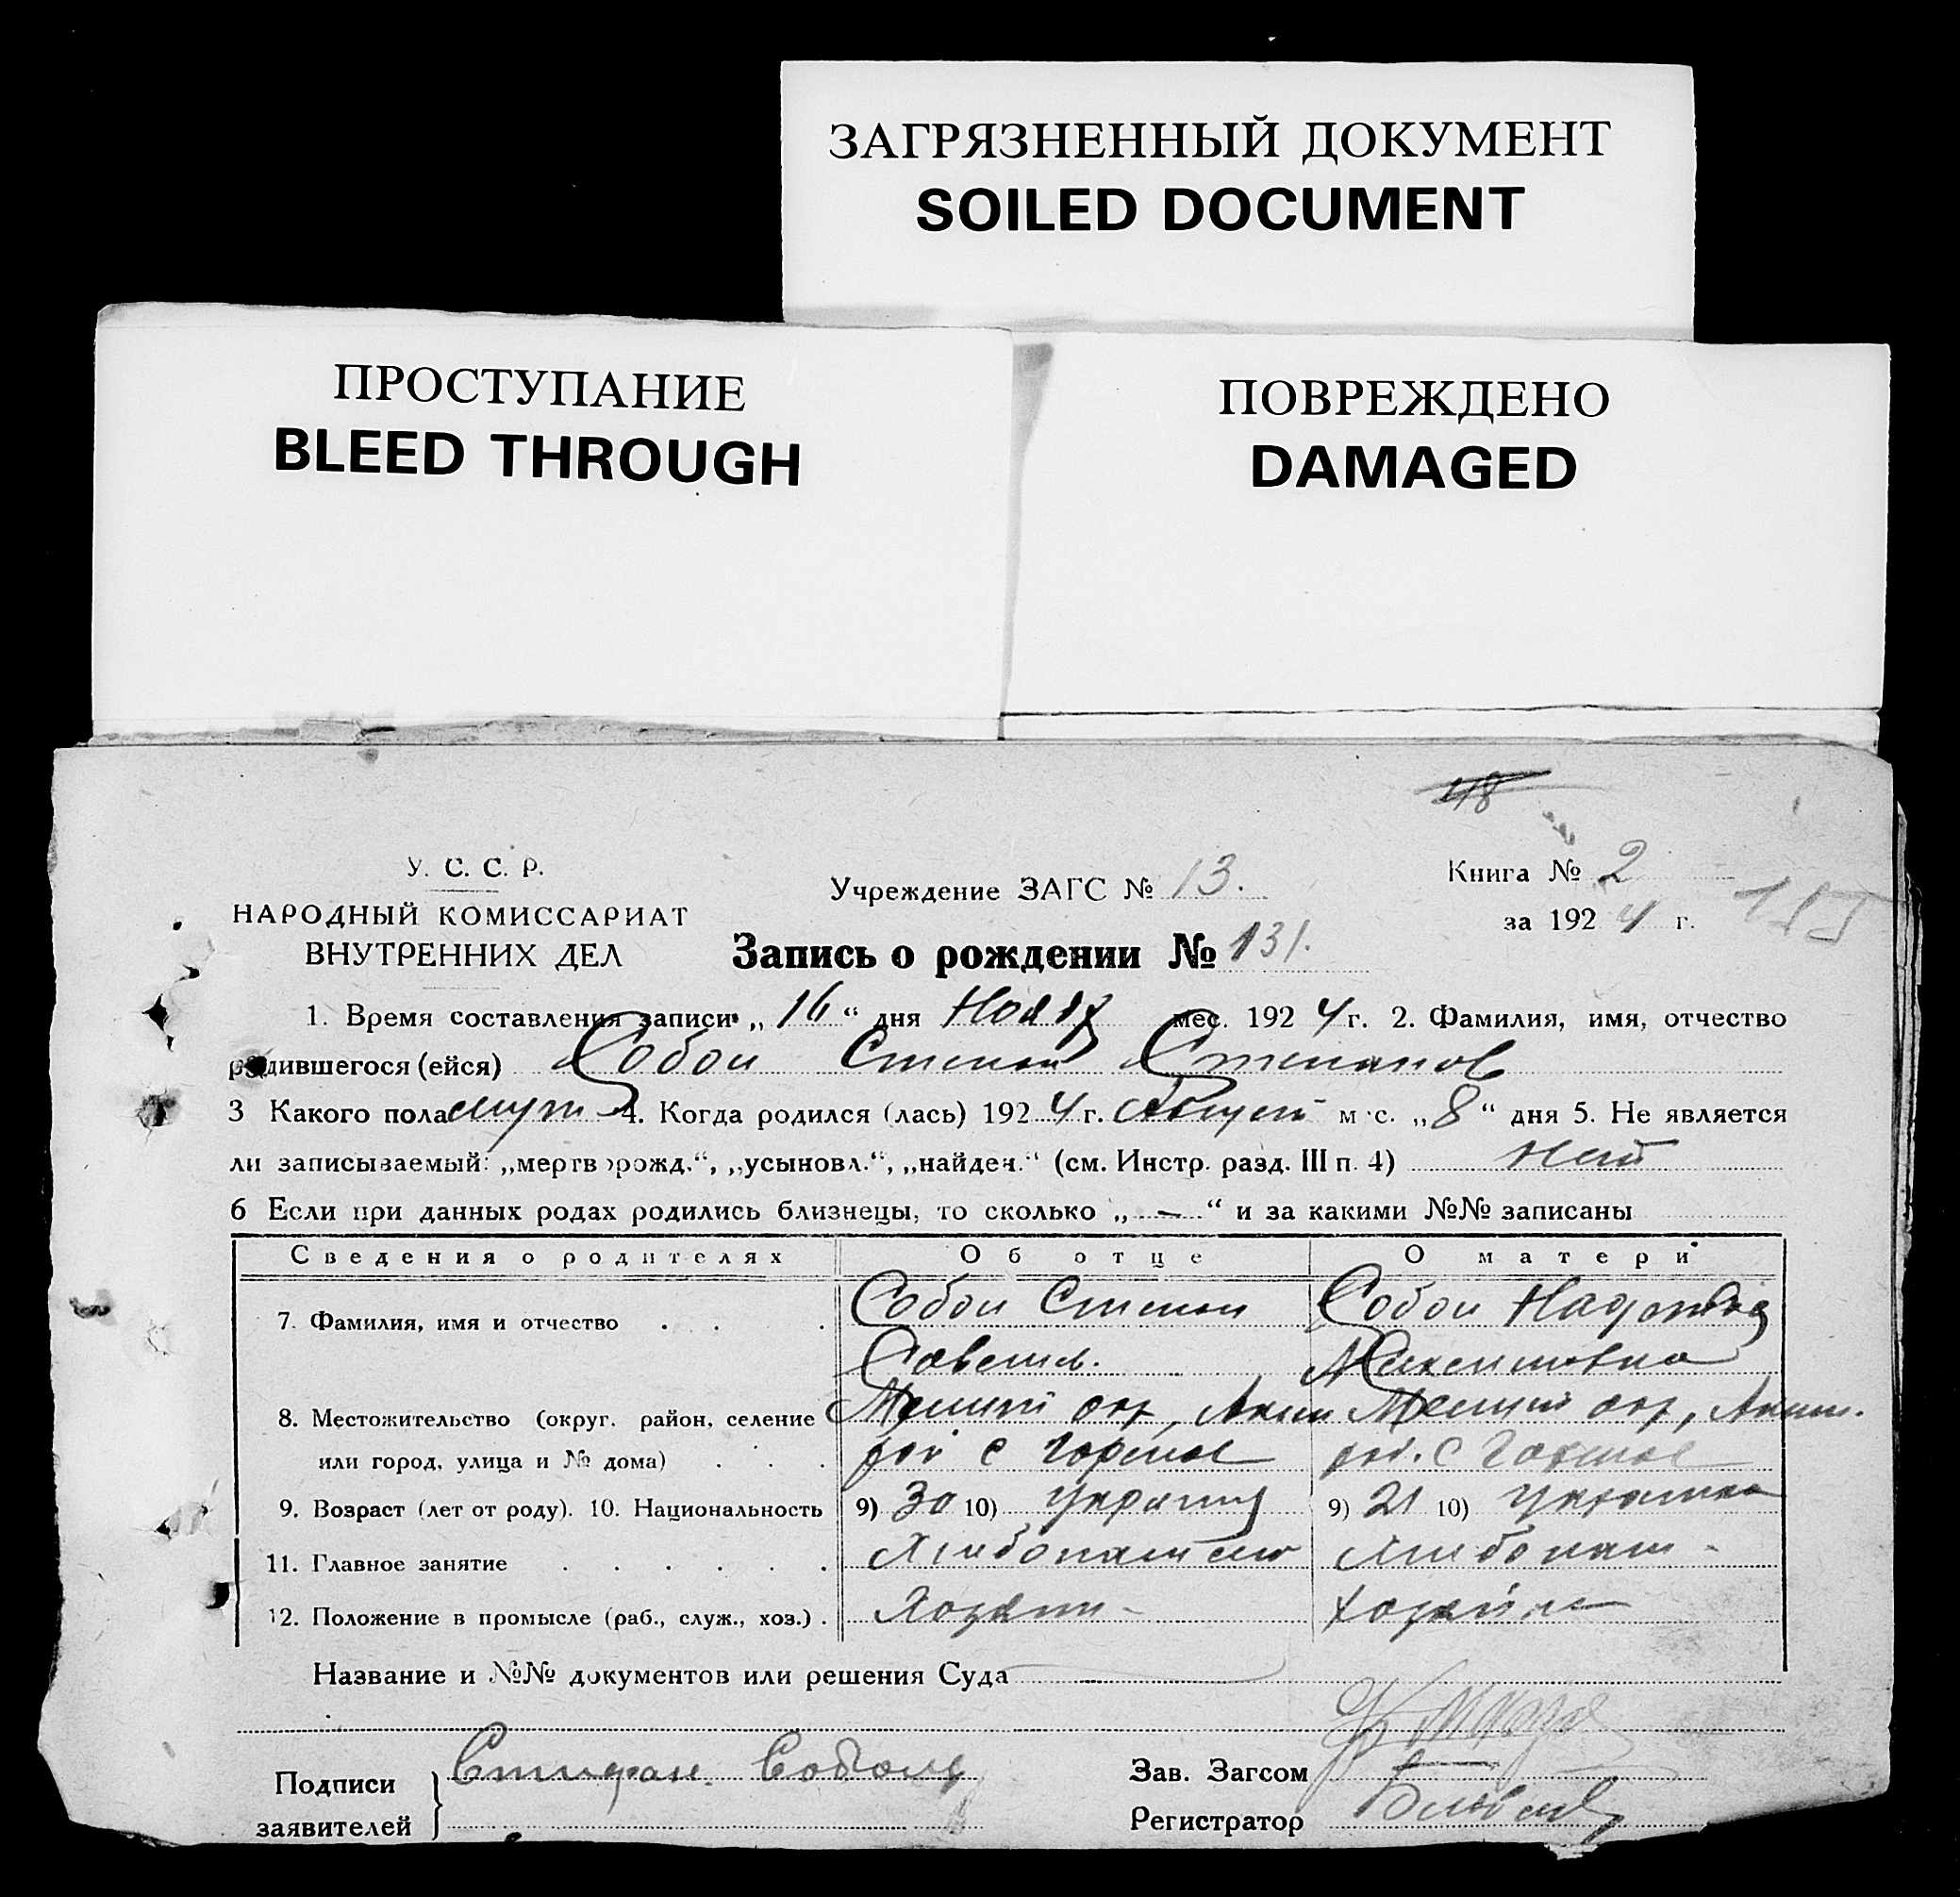 ЗАГРЯЗНЕННЫЙ ДОКУМЕНТ
SOILED DOCUMENT
ПРОСТУПАНИЕ
BLEED THROUGH
ПОВРЕЖДЕНО
DAMAGED
48
У. С. С. Р.
НАРОДНЫЙ КОМИССАРИАТ
ВНУТРЕННИХ ДЕЛ
Учреждение ЗАГС № 13.
Запись о рождении № 131.
Книга № 2
за 1924 г.
1. Время составления записи „16“ дня Нояб мес. 1924 г. 2. Фамилия, имя, отчество
родившегося (ейся) Собол Степан Степанов
3 Какого пола муж 4. Когда родился (лась) 1924 г. Август мес. „8“ дня 5. Не является
ли записываемый: „мертворожд.“, „усыновл.“, „найден.“ (см. Инстр. разд. III п. 4) Нет
6 Если при данных родах родились близнецы, то сколько „ — “ и за какими №№ записаны
Сведения о родителях Об отце О матери
7. Фамилия, имя и отчество Собол Степан Собол
Савельев. Максимовна
8. Местожительство (округ. район, селение Мелит окр, Аким Мелит окр, Аким.
или город, улица и № дома) рай с Горелое рай. с Горелое
9. Возраст (лет от роду). 10. Национальность 9) 30 10) Украинец 9) 21 10) Украинка
11. Главное занятие Хлебопашество Хлебопаш-
12. Положение в промысле (раб., служ., хоз.) Хозяин- Хозяйка
Название и №№ документов или решения Суда
Подписи
заявителей
Зав. Загсом
Регистратор